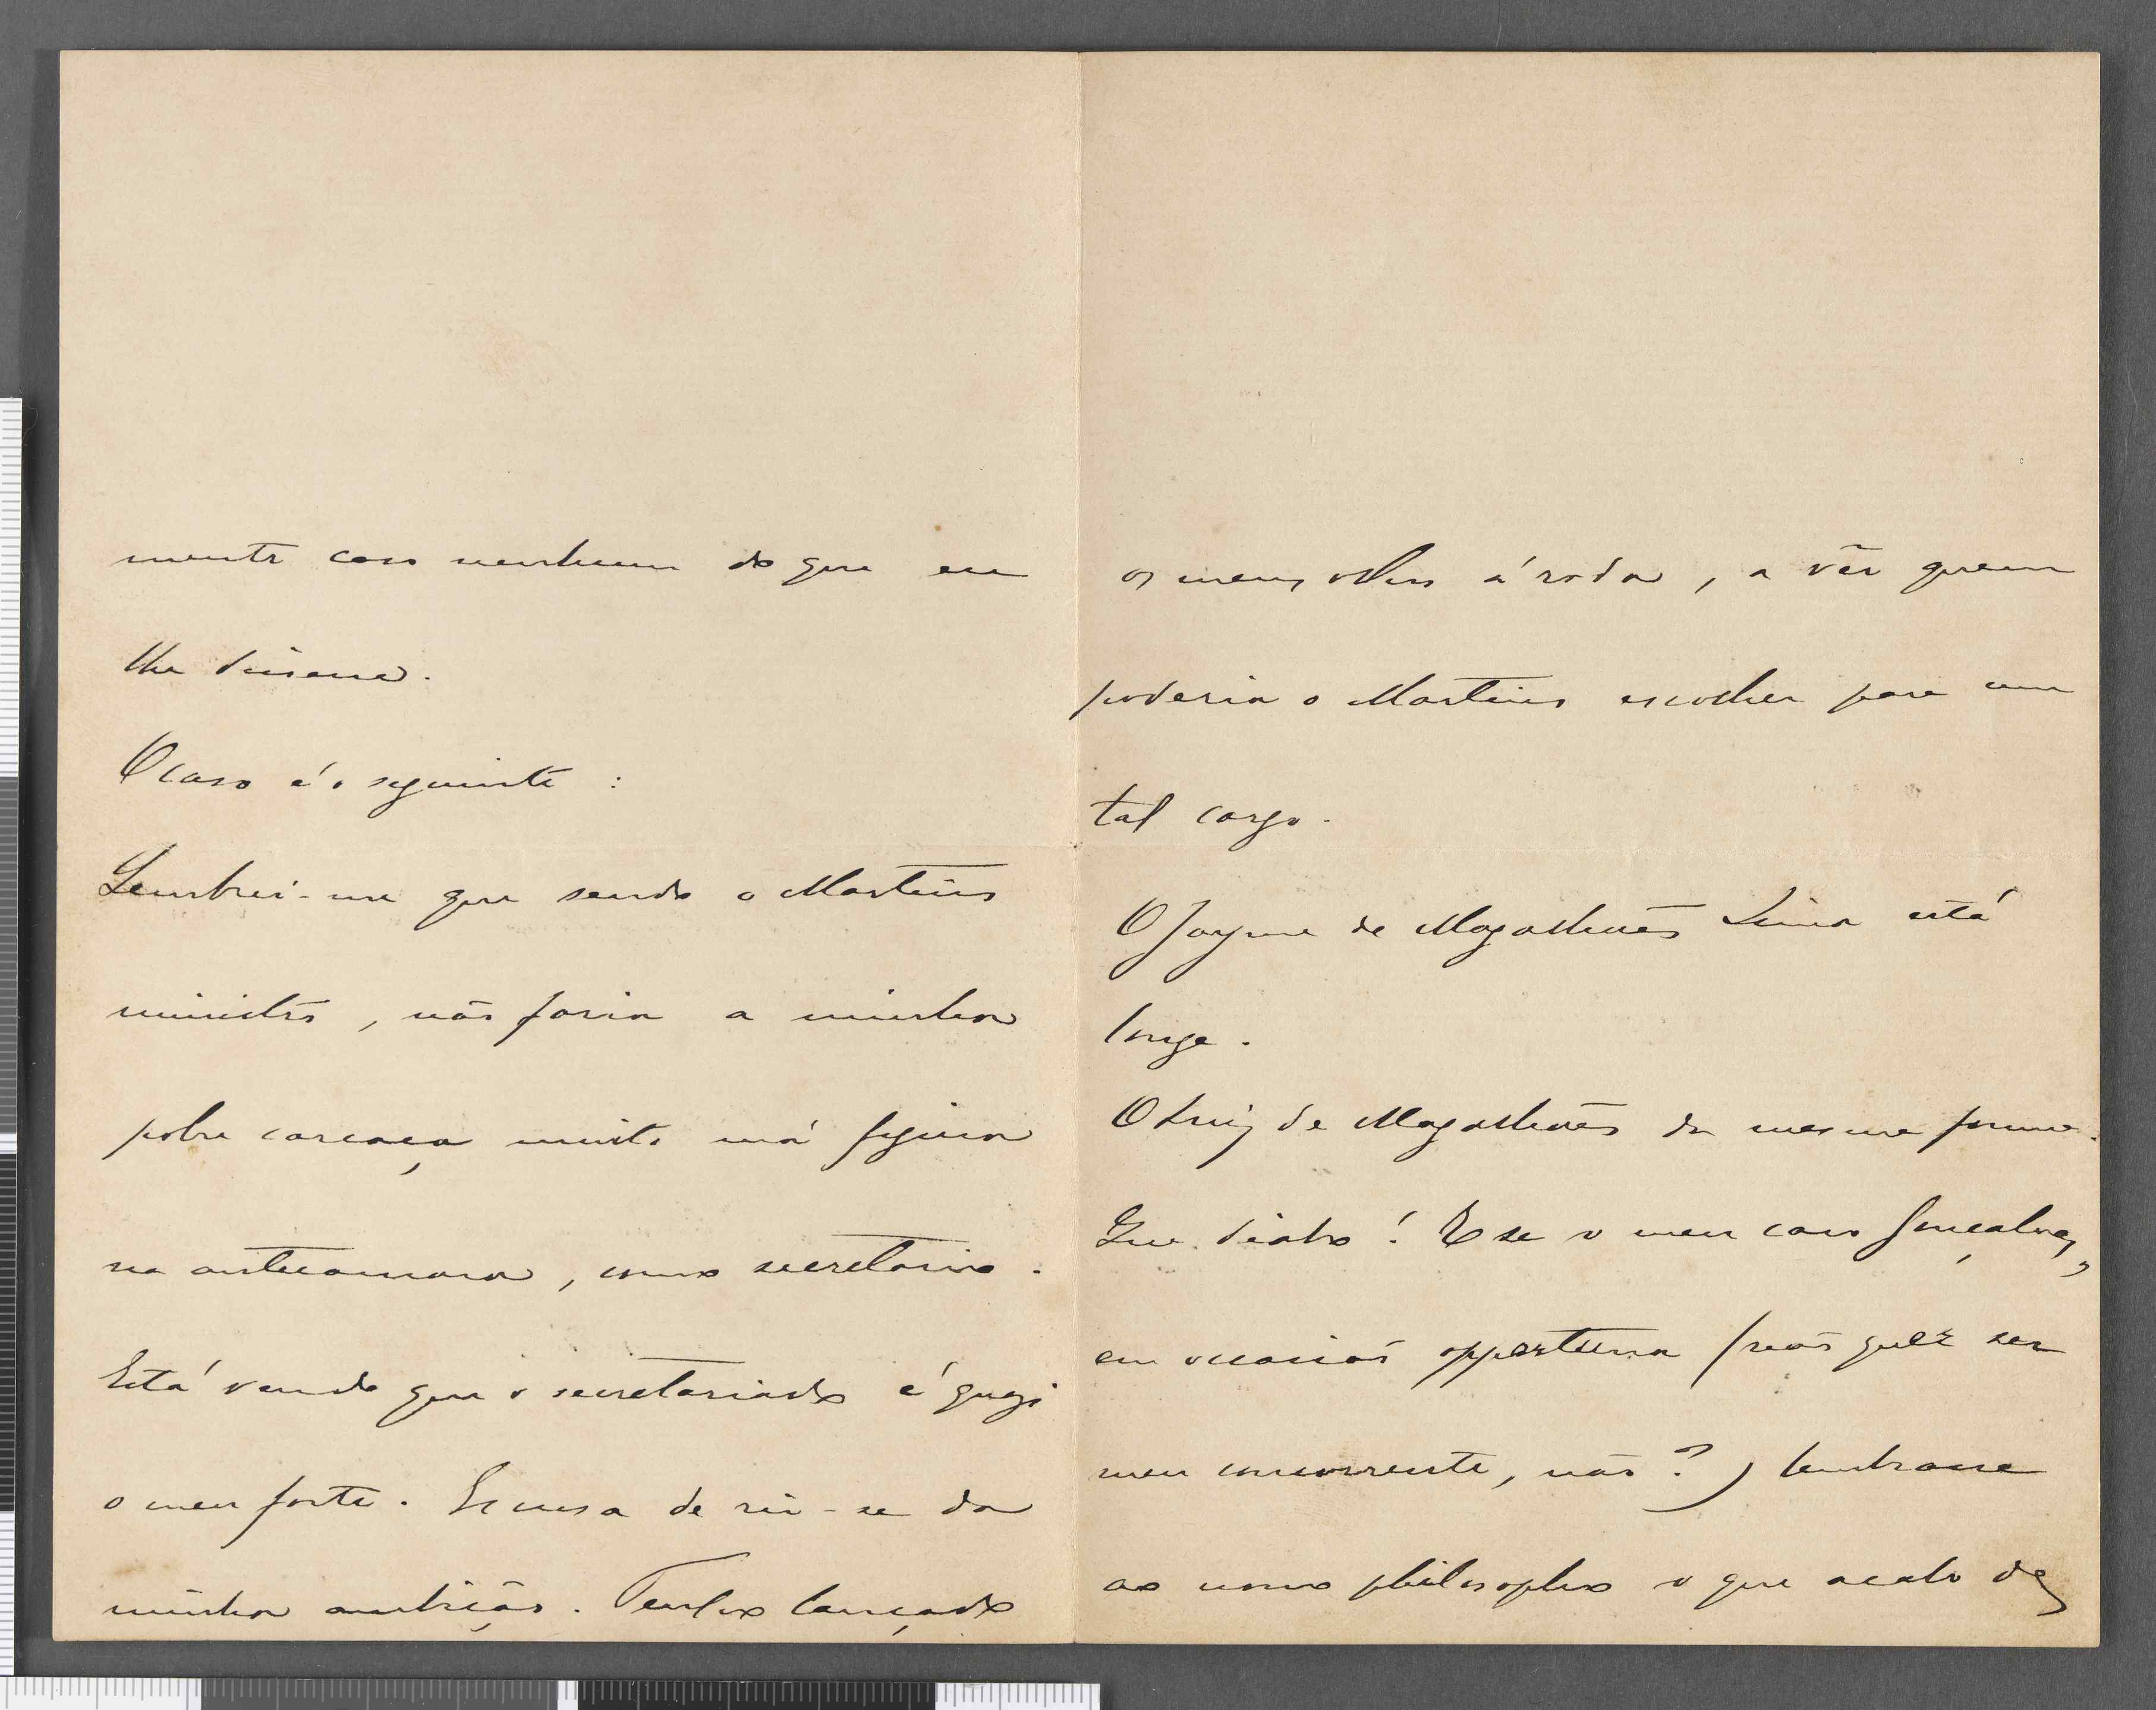 mente caso nenhum do que eu
lhe dissesse.
O caso é o seguinte :
Lembrei-me que sendo o Martins
ministro, não faria a minha
pobre carcaça muito má figura
na antecamara, como secretario.
Está vendo que o secretariado é quazi
o meu forte. Escusa de rir-se da
minha ambição. Tenho lançado
os meus olhos á roda, a vêr quem
poderia o Martins escolher para um
tal cargo.
O Jayme de Magalhães Lima está
longe.
O Luiz de Magalhães da mesma forma.
Que diabo! E se o meu caro Gonçalves,
em occasião opportuna (não quer ser
meu concorrente, não?) lembrasse
ao nosso philosopho o que acabo de